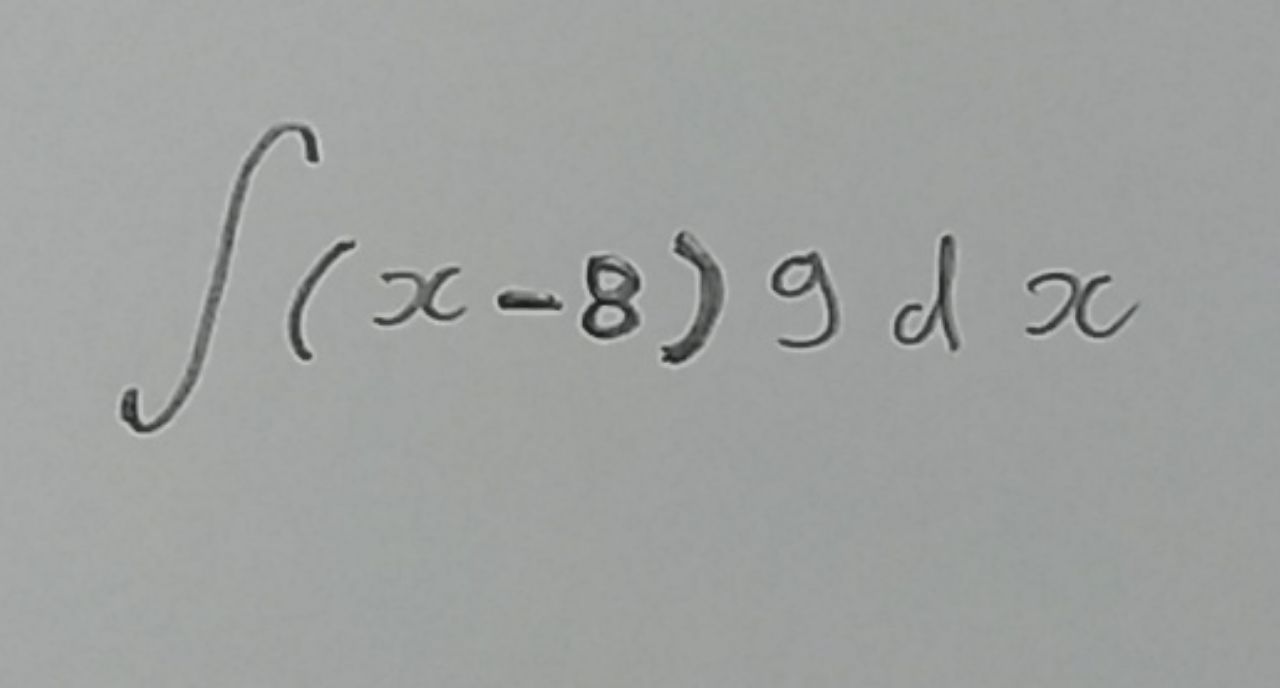 ∫(x-8) 9 d x